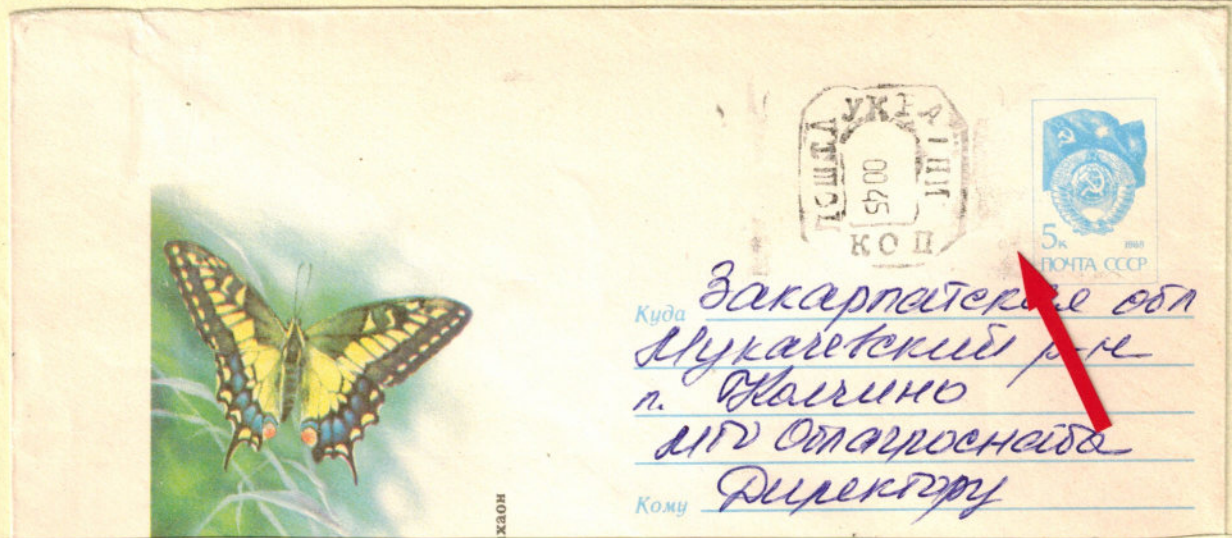 ПОШТА УКРАЇНИ
00 45
КОП
5к 1988
ПОЧТА СССР
Куда Закарпатская обл
Мукачевский р-н
п. Кольчино
МТО Облагроснаба
Кому Директору
хаон